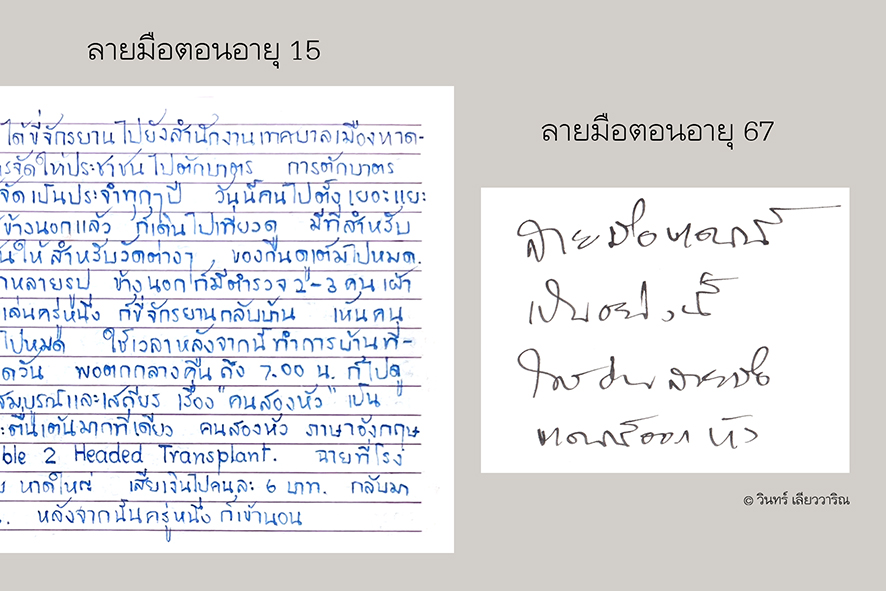 ลายมือตอนอายุ 15
ได้ขี่จักรยานไปยังสำนักงานเทศบาลเมืองหาด-
รจัดให้ประชาชนไปตักบาตร การตักบาตร
จัดเป็นประจำทุกๆปี วันนี้คนไปตั้งเยอะแยะ
ข้างนอกแล้ว ก็เดินไปเที่ยวดู มีที่สำหรับ
นให้สำหรับวัดต่างๆ, ของกินดูเต็มไปหมด.
าหลายรูป ข้างนอกก็มีตำรวจ 2-3 คนเฝ้า
เล่นครู่หนึ่ง ก็ขี่จักรยานกลับบ้าน เห็นคน
ไปหมด ใช้เวลาหลังจากนี้ทำการบ้านที่-
ดวัน พอตกกลางคืนถึง 7.00 น. ก็ไปดู
สมบูรณ์และเสถียร เรื่อง "คนสองหัว" เป็น
ะตื่นเต้นมากทีเดียว คนสองหัว ภาษาอังกฤษ
ble 2 Headed Transplant. ฉายที่โรง
หาดใหญ่ เสียเงินไปคนละ 6 บาท. กลับมา
. หลังจากนั้นครู่หนึ่งก็เข้านอน
ลายมือตอนอายุ 67
ลายมือตอนนี้
เป็นอย่างนี้
ใครอ่านลายมือ
ตอนนี้ออก
© วินทร์ เลียววาริณ